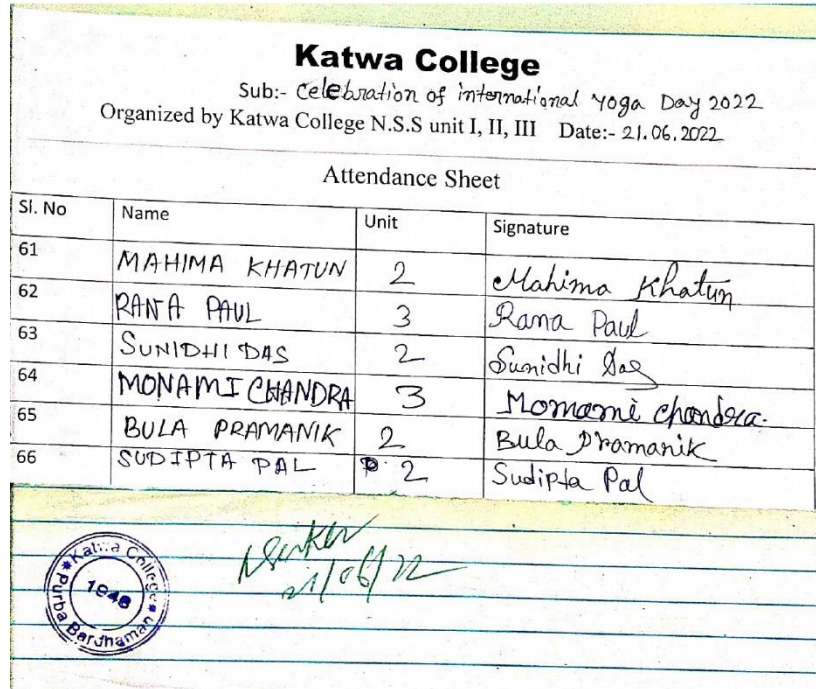 Katwa College
Sub:- Celebration of international Yoga Day 2022
Organized by Katwa College N.S.S unit I, II, III Date:- 21.06.2022
Attendance Sheet
Sl. No Name Unit Signature
61 MAHIMA KHATUN 2 Mahima Khatun
62 RANA PAUL 3 Rana Paul
63 SUNIDHI DAS 2 Sunidhi Das
64 MONAMI CHANDRA 3 Monami Chandra.
65 BULA PRAMANIK 2 Bula Pramanik
66 SUDIPTA PAL 2 Sudipta Pal
21/06/22
Katwa College
1948
Purba Bardhaman